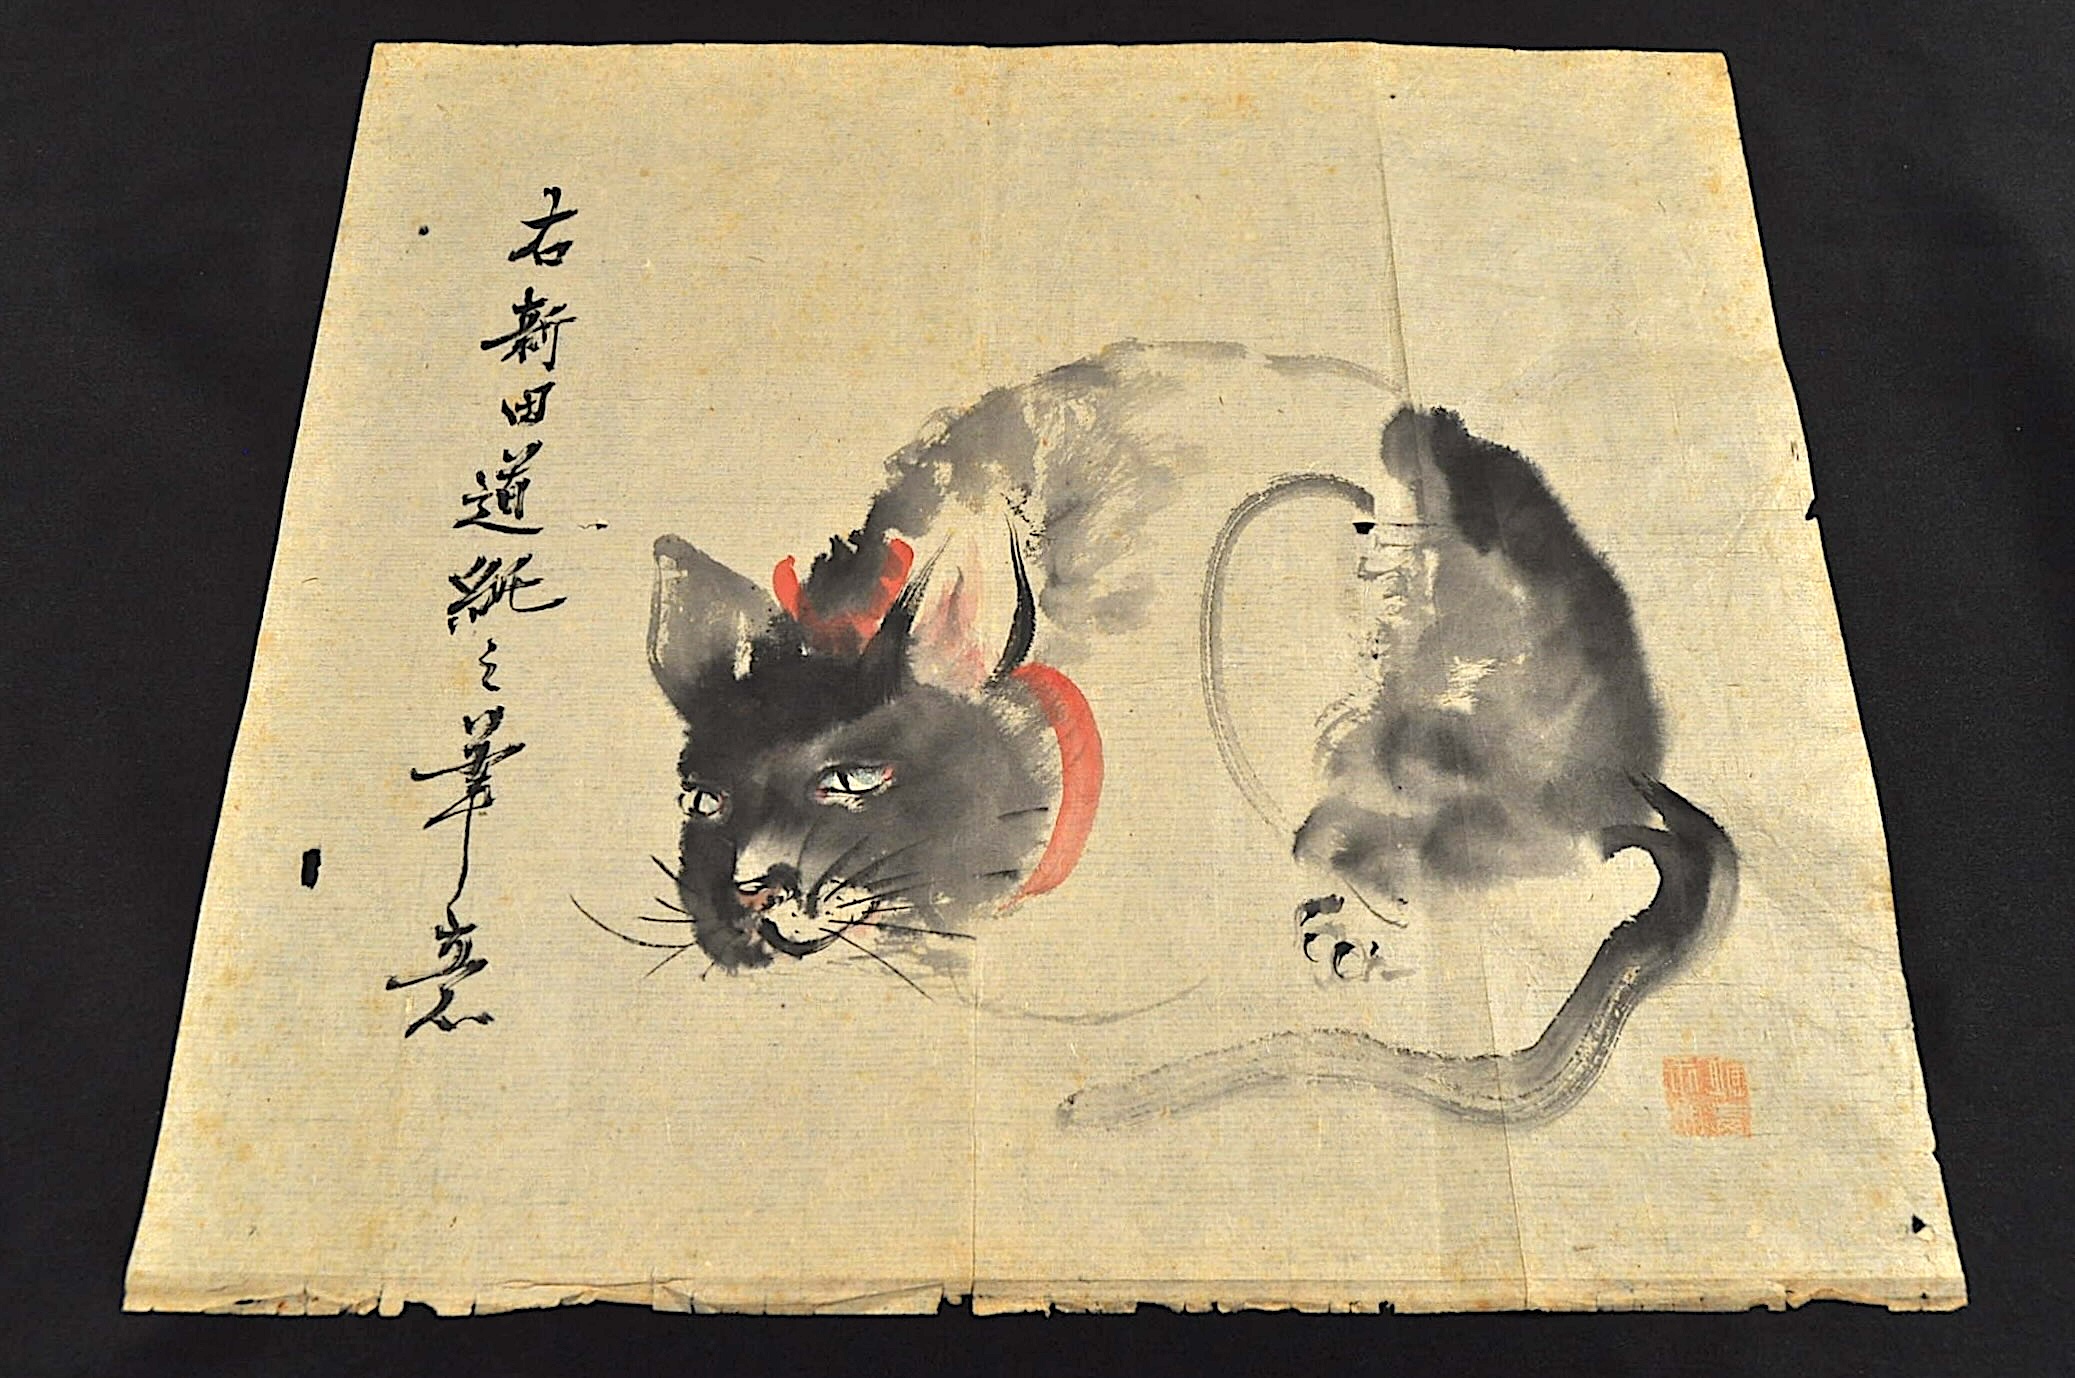 右新田道純之筆意